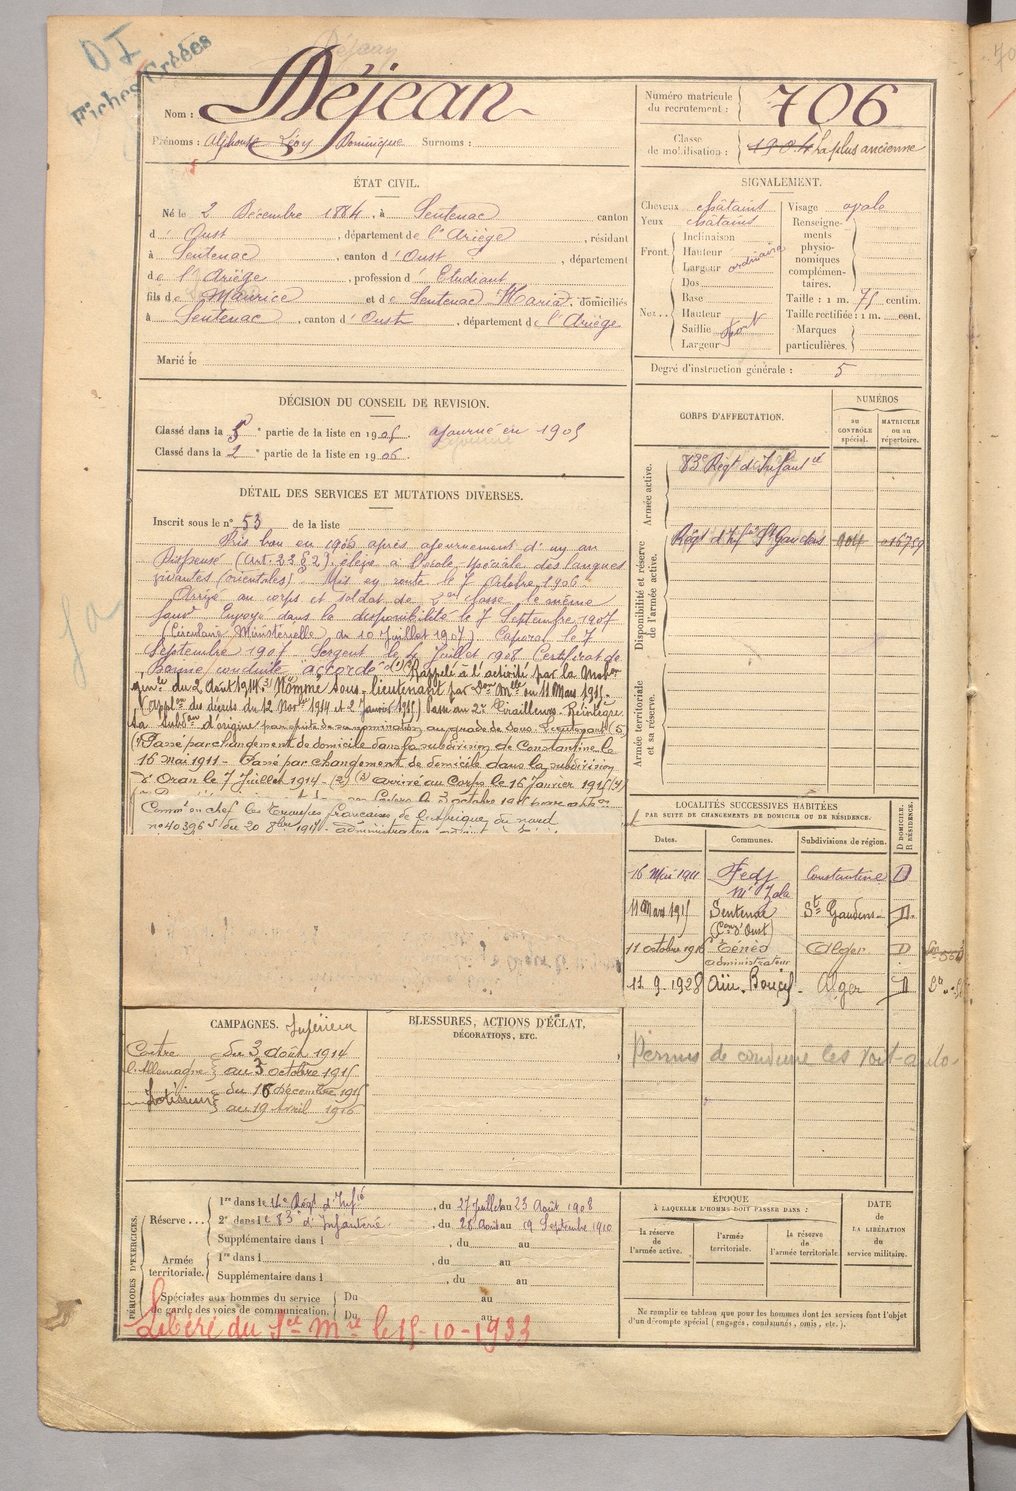 DI
Fiches Créées
Dejean
Nom : Déjean
Prénoms : Alphonse Léon Dominique Surnoms :
Numéro matricule du recrutement : 706
Classe de mobilisation : 1904 La plus ancienne
ÉTAT CIVIL.
Né le 2 Décembre 1884, à Sentenac canton
d' Oust, département de l'Ariège, résidant
à Sentenac, canton d'Oust, département
de l'Ariège, profession d' Etudiant
fils de Maurice et de Sentenac Maria, domiciliés
à Sentenac, canton d'Oust, département de l'Ariège
Marié le
SIGNALEMENT.
Cheveux châtains
Yeux châtains
Front. Inclinaison
Hauteur
Largeur ordinaire
Nez. Dos
Base
Hauteur
Saillie fort
Largeur
Visage ovale
Renseignements physionomiques complémentaires.
Taille : 1 m. 75 centim.
Taille rectifiée : 1 m. cent.
Marques particulières.
Degré d'instruction générale : 5
DÉCISION DU CONSEIL DE REVISION.
Classé dans la 5e partie de la liste en 1905. ajourné en 1905
Classé dans la 2e partie de la liste en 1906.
DÉTAIL DES SERVICES ET MUTATIONS DIVERSES.
Inscrit sous le n° 53 de la liste
Pris bon en 1906 après ajournement d'un an
Dispensé (Art. 23 § 2), élève à l'école spéciale des langues
vivantes (orientales). Mis en route le 7 Octobre 1906.
Arrivé au corps et soldat de 2e classe le même
jour. Envoyé dans la disponibilité le 7 Septembre 1907
(Circulaire Ministérielle du 10 Juillet 1907). Caporal le 7
Septembre 1907. Sergent le 4 Juillet 1908 Certificat de
Bonne conduite "accordé" Rappelé à l'activité par la Mob
gen le du 2 Août 1914. Nommé sous-lieutenant par Don Mlle du 11 Mars 1915.
(Appl on des décrets du 12 Nov bre 1914 et 2 Janvier 1915) Passé au 2e Tirailleurs. Réintègre
sa Subd on d'origine par suite de sa nomination au grade de Sous-Lieutenant (5)
(1) Passé par changement de domicile dans la subdivision de Constantine le
16 mai 1911 - Passé par changement de domicile dans la subdivision
d'Oran le 7 Juillet 1914 - (2) (3) arrivé au Corps le 16 Janvier 1915 (4)
le 3 octobre 1915
Comm on chef les troupes françaises de l'afrique du nord
n° 40396 S du 20 8bre 1917 - administrateur
CORPS D'AFFECTATION.
NUMÉROS
AU CONTRÔLE spécial.
MATRICULE ou au répertoire.
Armée active.
83e Régt d'Infant ie
Disponibilité et réserve de l'armée active.
Régt d'Inf ie St Gaudens
Armée territoriale et sa réserve.
LOCALITÉS SUCCESSIVES HABITÉES
PAR SUITE DE CHANGEMENTS DE DOMICILE OU DE RÉSIDENCE.
D DOMICILE. R RÉSIDENCE.
Dates. Communes. Subdivisions de région.
16 Mai 1911 Fedj M'Zala Constantine D
11 Mars 1915 Sentenac (Con d'Oust) St Gaudens D.
11 octobre 1916 Ténès administrateur Alger D
11.9.1928 Aïn-Boucif Alger D
Permis de conduire les voit-auto
CAMPAGNES. Intérieur
Contre l'Allemagne du 3 Août 1914
au 3 octobre 1915
Intérieur du 16 Décembre 1915
au 19 Avril 1916
BLESSURES, ACTIONS D'ÉCLAT,
DÉCORATIONS, ETC.
PÉRIODES D'EXERCICES.
Réserve... 1re dans le 14e Régt d'Inf ie, du 27 juillet au 23 Août 1908
2e dans le 83e d'Infanterie, du 28 Août au 19 Septembre 1910
Supplémentaire dans l , du au
Armée territoriale. 1re dans l , du au
Supplémentaire dans l , du au
Spéciales aux hommes du service de garde des voies de communication. Du au
Du au
Libéré du Sce Mre le 15-10-1933
ÉPOQUE
À LAQUELLE L'HOMME DOIT PASSER DANS :
la réserve de l'armée active.
l'armée territoriale.
la réserve de l'armée territoriale.
DATE de LA LIBÉRATION du service militaire.
Ne remplir ce tableau que pour les hommes dont les services font l'objet
d'un décompte spécial (engagés, condamnés, omis, etc.).